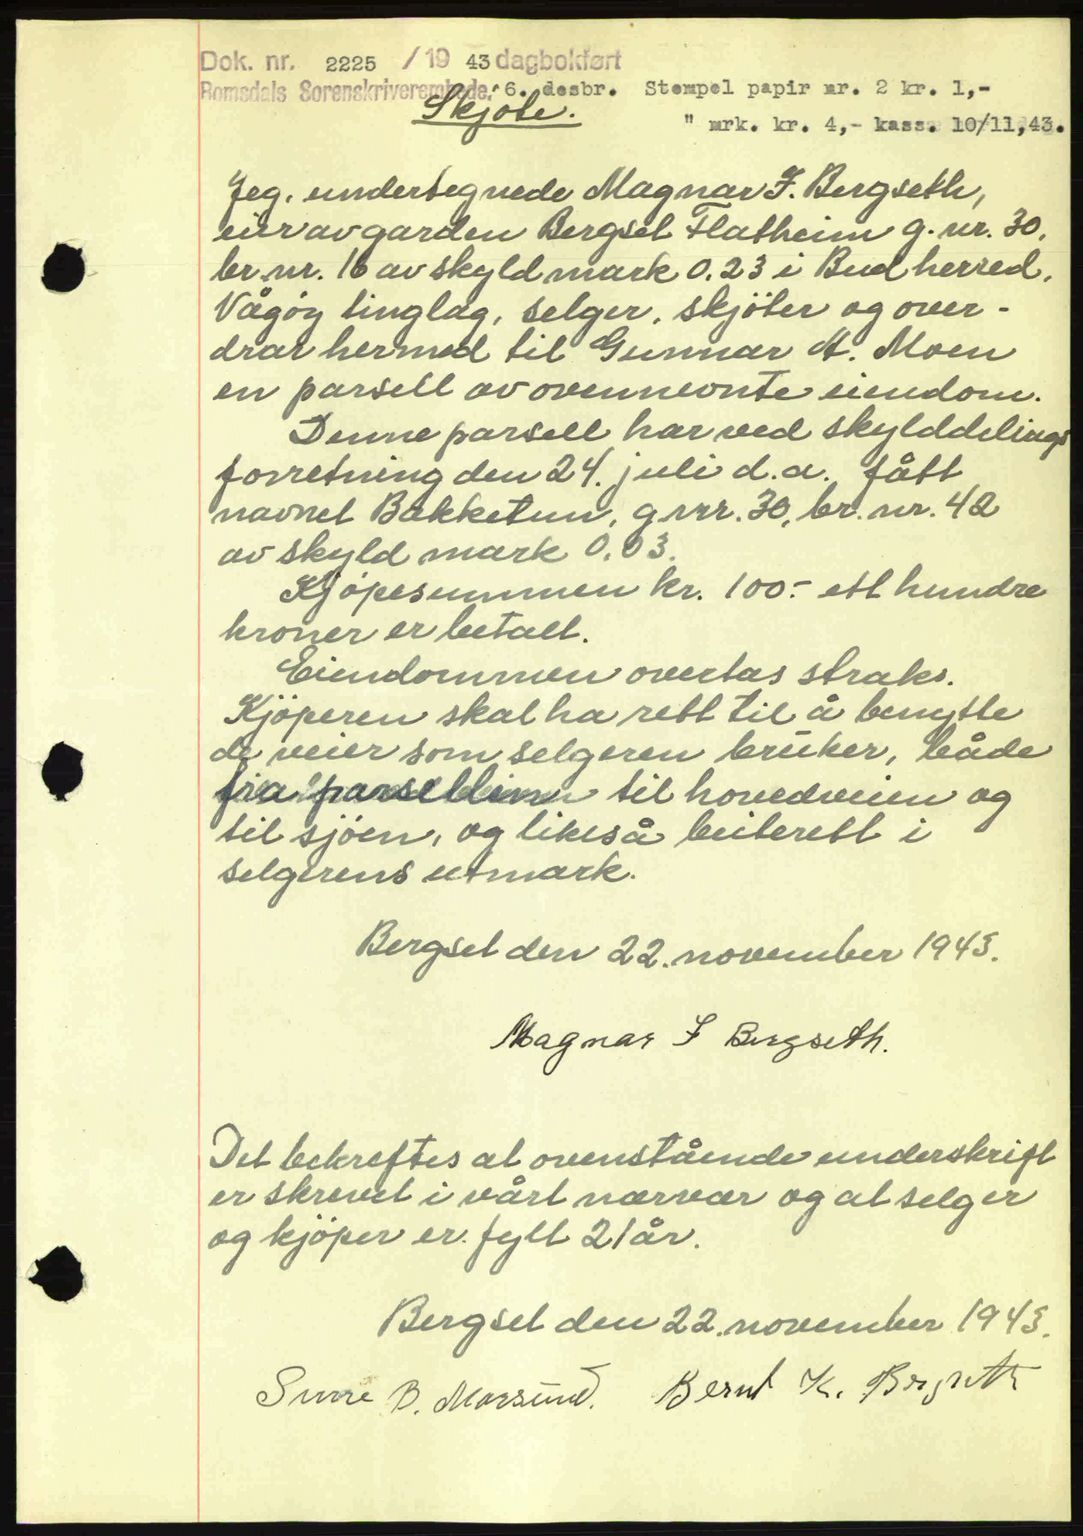 Dok. nr. 2225 / 19 43 dagbokført
Romsdals Sorenskriverembede. 6. desbr. Stempel papir mr. 2 kr. 1,-
" mrk. kr. 4,- kass. 10/11,43.
Skjøte.
Jeg, undertegnede Magnar F. Bergseth,
eier av garden Bergset Flatheim g. nr. 30,
br. nr. 16 av skyld mark 0.23 i Bud herred,
Vågøy tinglag, selger, skjöter og over-
drar hermed til Gunnar A. Moen
en parsell av ovennevnte eiendom.
Denne parsell har ved skylddelings
forretning den 24. juli d.a. fått
navnet Bakketun, g.nr. 30, br. nr. 42
av skyld mark 0.03.
Kjöpesummen kr. 100.- ett hundre
kroner er betalt.
Eiendommen overtas straks.
Kjöperen skal ha rett til å benytte
de veier som selgeren bruker, både
fra parsellen til hovedveien og
til sjöen, og likeså beiterett i
selgerens utmark.
Bergset den 22. november 1943.
Magnar F Bergseth.
Det bekreftes at ovenstående underskrift
er skrevet i vårt nærvær og at selger
og kjöper er fyllt 21 år.
Bergset den 22. november 1943.
B. Morsund. Bernt K. Bergseth